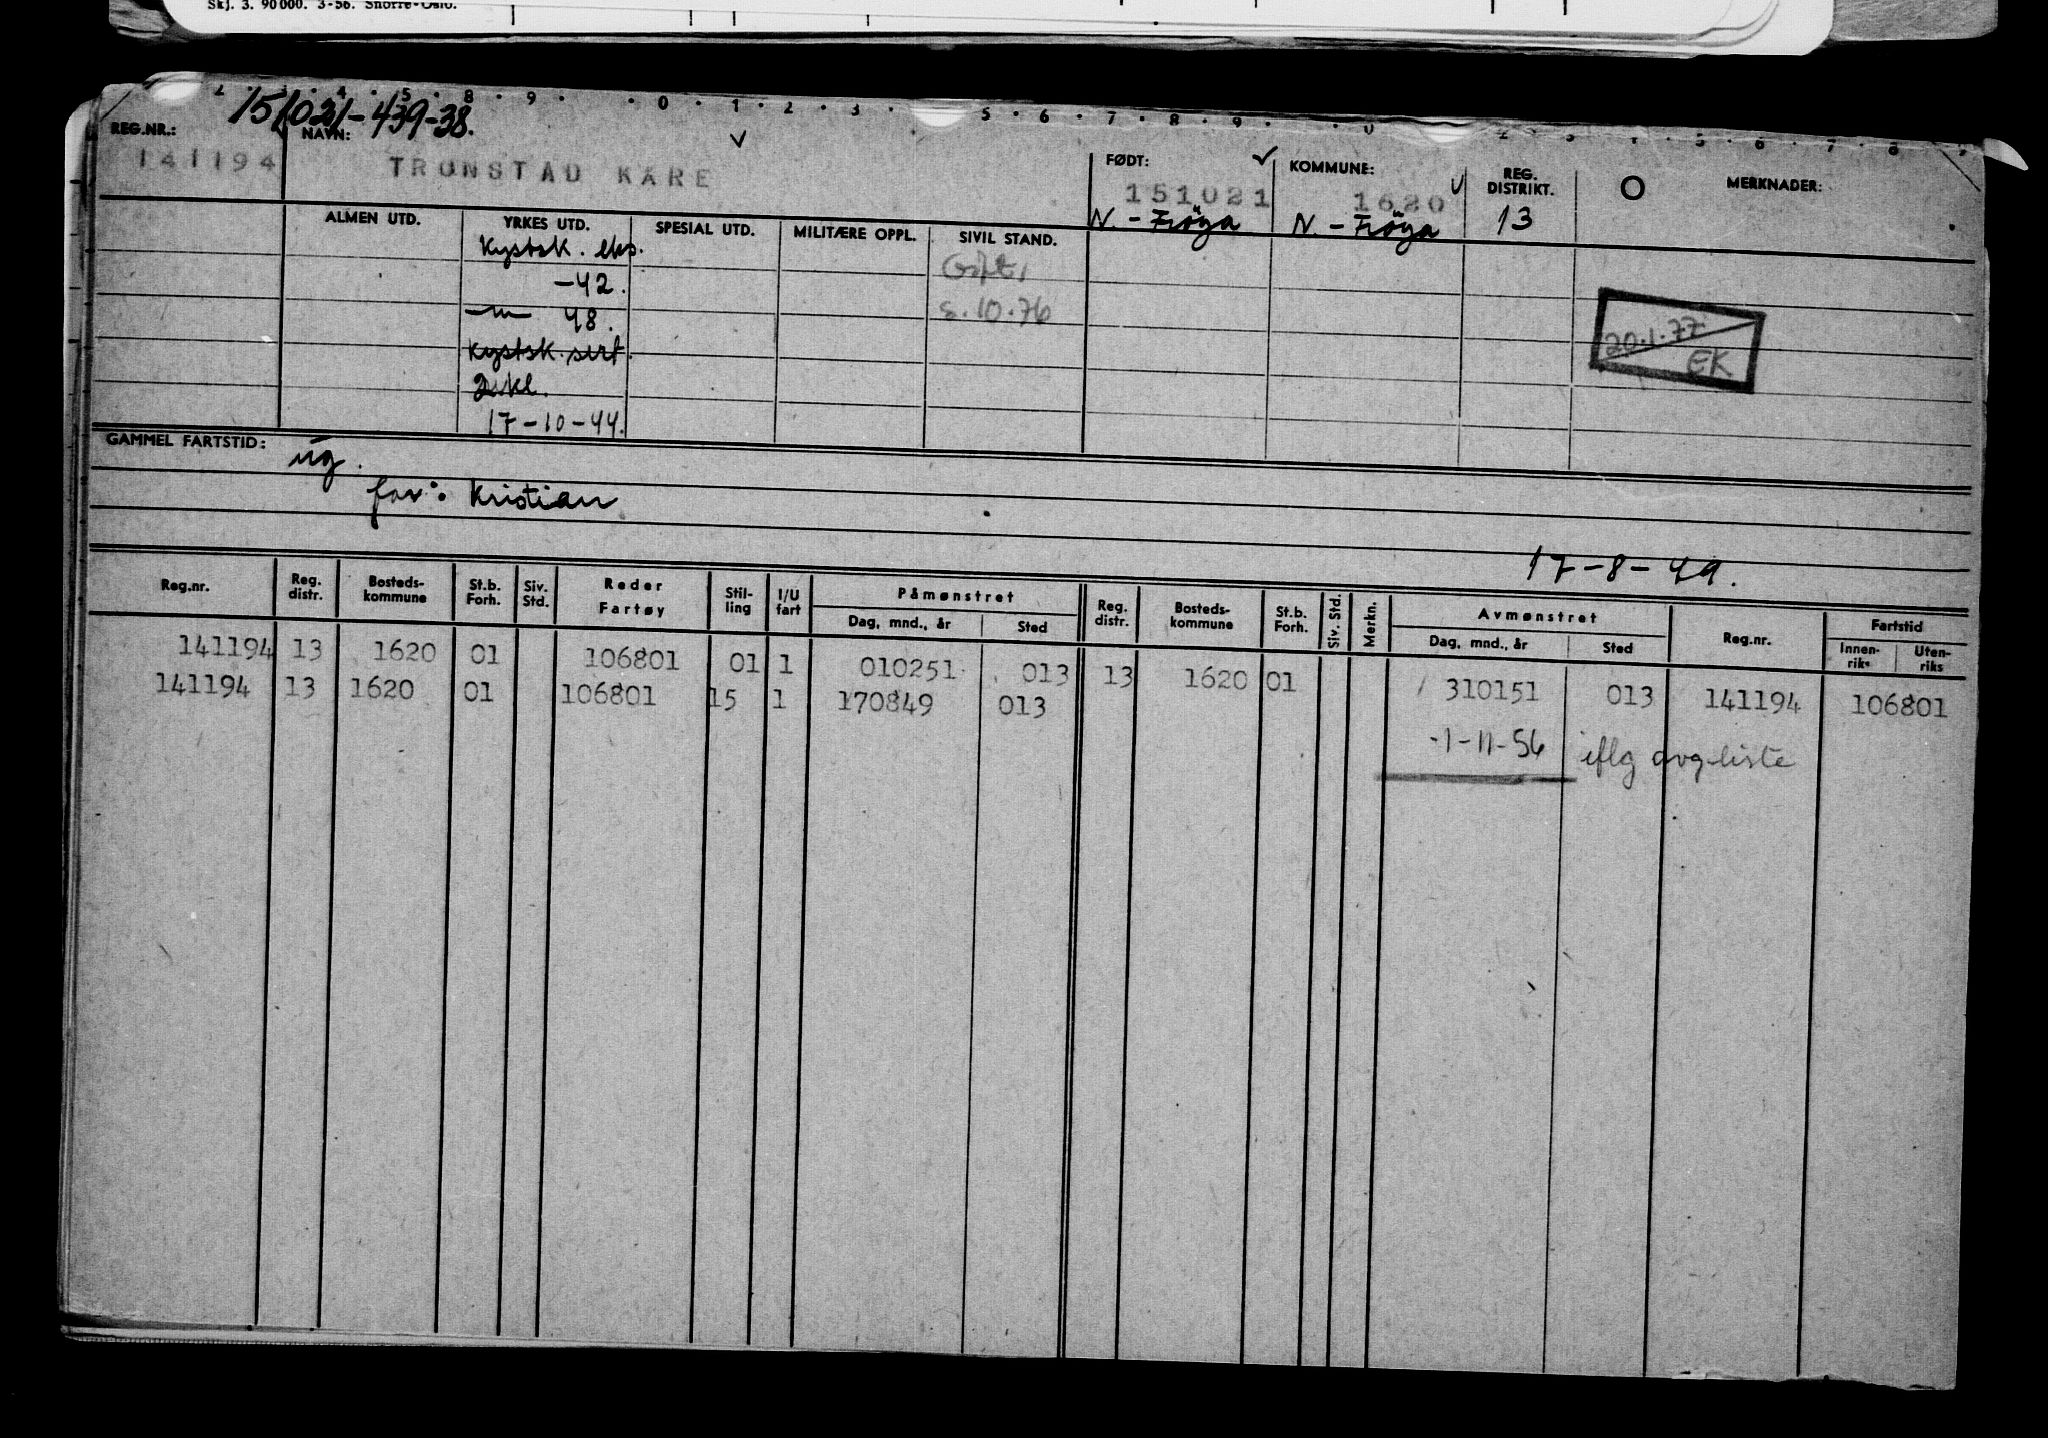 Skj. 3. 90000. 3-56. Snorre-Oslo.
2 . 3 . 4 . 5 . 8 . 9 . . 0 . 1 . 2 . 3 . 5 . 6 . 7 . 8 . 9 . . 0 2 3 4 . 5 . 6 . 7 . 8 . 9
151021-439-38.
REG.NR.: NAVN: FØDT: KOMMUNE: REG. DISTRIKT. O MERKNADER:
141194 TRONSTAD KARE 151021 1620
N. - Fröya N. - Fröya 13
ALMEN UTD. YRKES UTD. SPESIAL UTD. MILITÆRE OPPL. SIVIL STAND.
Kystsk. eks. Gift,
-42. s. 10.76
-"- 48. 20.1.77
kystsk. sert. EK
2.kl.
17-10-44.
GAMMEL FARTSTID: ug.
far: Kristian
17-8-49.
Reg.nr. Reg. distr. Bosteds-kommune St.b. Forh. Siv. Std. Reder Fartøy Stil-ling I/U fart Påmønstret Reg. distr. Bosteds-kommune St.b. Forh. Siv. Std. Merkn. Avmønstret Reg.nr. Fartstid
Dag, mnd., år Sted Dag, mnd., år Sted Innen-riks Uten-riks
141194 13 1620 01 106801 01 1 010251 013 13 1620 01 310151 013 141194 106801
141194 13 1620 01 106801 15 1 170849 013
-1-11-56 iflg avg-liste